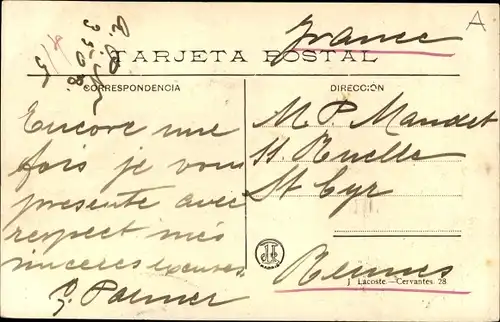 France
A
TARJETA POSTAL
CORRESPONDENCIA
DIRECCIÓN
Encore une
fois je vous
presente avec
respect mes
sinceres excuses
G. Palmer
M. P. Mandet
11. Ruelle
St Cyr
Rennes
J. Lacoste — Cervantes, 28